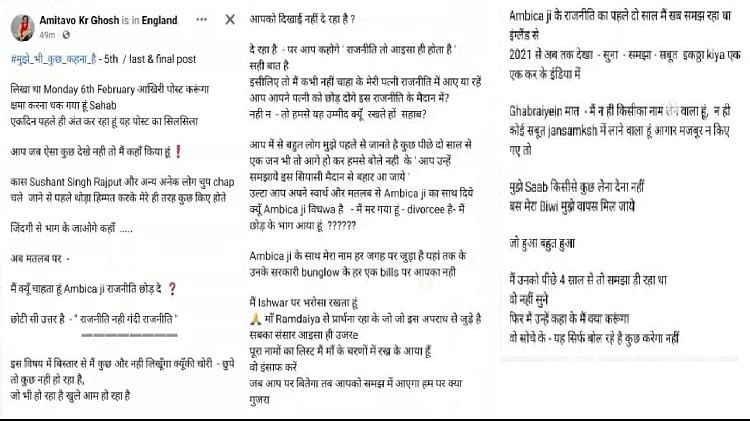 Amitavo Kr Ghosh is in England.
49m
#मुझे_भी_कुछ_कहना_है - 5th / last & final post
लिखा था Monday 6th February आखिरी पोस्ट करूंगा
क्षमा करना थक गया हूं Sahab
एकदिन पहले ही अंत कर रहा हूं यह पोस्ट का सिलसिला
आप जब ऐसा कुछ देखे नही तो मैं कहाँ किया हूं ❗
कास Sushant Singh Rajput और अन्य अनेक लोग चुप chap
चले जाने से पहले थोड़ा हिम्मत करके मेरे ही तरह कुछ किए होते
जिंदगी से भाग के जाओगे कहाँ .....
अब मतलब पर -
मैं क्यूँ चाहता हूं Ambica ji राजनीति छोड़ दे ❓
छोटी सी उत्तर है - " राजनीति नही गंदी राजनीति "
इस विषय में बिस्तार से मैं कुछ और नही लिखूँगा क्यूँकी चोरी - छुपे
तो कुछ नही हो रहा है,
जो भी हो रहा है खुले आम हो रहा है
आपको दिखाई नहीं दे रहा है ?
दे रहा है - पर आप कहोगे ' राजनीति तो आइसा ही होता है '
सही बात है
इसीलिए तो मैं कभी नहीं चाहा के मेरी पत्नी राजनीति में आए या रहें
आप आपने पत्नी को छोड़ दोगे इस राजनीति के मैदान में?
नही न - तो हमसे यह उम्मीद क्यूँ रखते हों सहाब?
आप में से बहुत लोग मुझे पहले से जानते है कुछ पीछे दो साल से
एक जन भी तो आगे हो कर हमसे बोले नही के ' आप उन्हें
समझाये इस सियासी मैदान से बहार आ जाये '
उल्टा आप अपने स्वार्थ और मतलब से Ambica ji का साथ दिये
क्यूँ Ambica ji विधwa है - मैं मर गया हूं - divorcee है- मैं
छोड़ के भाग आया हूं ??????
Ambica ji के साथ मेरा नाम हर जगह पर जुड़ा है यहां तक के
उनके सरकारी bunglow के हर एक bills पर आपका नही
मैं Ishwar पर भरोसा रखता हूं
🙏 माँ Ramdaiya से प्रार्थना रहा के जो जो इस अपराध से जुड़े है
सबका संसार आइसा ही उजरe
पूरा नामों का लिस्ट मैं माँ के चरणों में रख के आया हूँ
वो इंसाफ करें
जब आप पर बितेगा तब आपको समझ में आएगा हम पर क्या
गुजरा
Ambica ji के राजनीति का पहले दो साल मैं सब समझ रहा था
इंग्लैंड से
2021 से अब तक देखा - सुना - समझा - सबूत इकठ्ठा kiya एक
एक कर के इंडिया में
Ghabraiyein मात - मैं न ही किसीका नाम लेने वाला हूं, न ही
कोई सबूत jansamksh में लाने वाला हूं आगार मजबूर न किए
गए तो
मुझे Saab किसीसे कुछ लेना देना नहीं
बस मेरा Biwi मुझे वापस मिल जाये
जो हुआ बहुत हुआ
मैं उनको पीछे 4 साल से तो समझा ही रहा था
वो नहीं सुने
फिर मैं उन्हें कहा के मैं क्या करूंगा
वो सोचे के - यह सिर्फ बोल रहे है कुछ करेगा नहीं